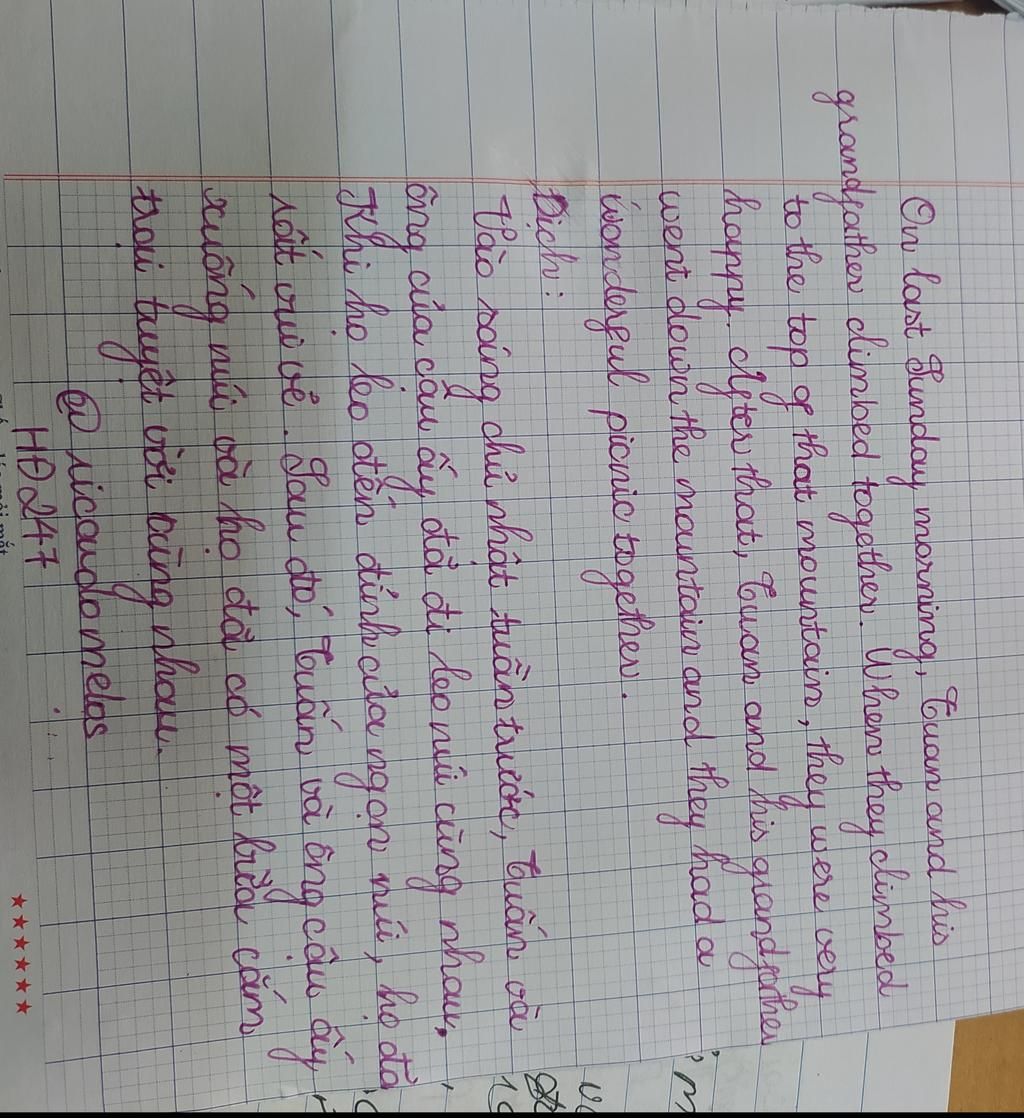 On last Sunday morning, Tuan and his
grandfather climbed together. When they climbed
to the top of that mountain, they were very
happy. After that, Tuan and his grandfather
went down the mountain and they had a
wonderful picnic together.
Dịch:
Vào sáng chủ nhật tuần trước, Tuấn và
ông của cậu ấy đã đi leo núi cùng nhau,
Khi họ leo đến đỉnh của ngọn núi, họ đã
rất vui vẻ. Sau đó, Tuấn và ông cậu ấy
xuống núi và họ đã có một bữa cắm
trại tuyệt vời cùng nhau.
@ ricardomelos
HĐ247